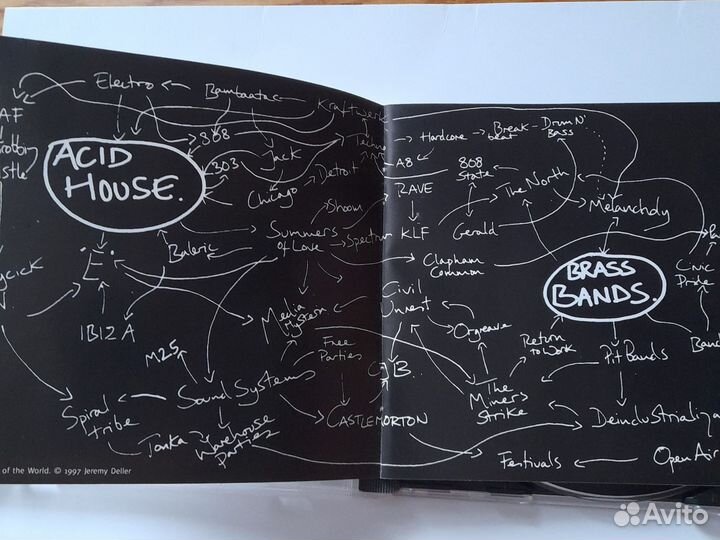 Electro
Bambaataa
Kraftwerk
AF
808
Techno
Hardcore
Break-
beat
Drum N'
Bass
ACID
HOUSE.
303
Jack
Detroit
A8
808
State
Chicago
RAVE
The North
Melancholy
Shoom
Summers
of Love
Spectrum
KLF
Gerald
Balearic
Clapham
Common
BRASS
BANDS.
Civic
Pride
E
IBIZA
Media
Hysteria
Civil
Unrest
Orgreave
Return
to Work
Pit Bands
Band
M25
Free
Parties
CJB
Sound Systems
The
Miners
Strike
Spiral
tribe
CASTLEMORTON
Deindustrializa
Tonka
Warehouse
Parties
Festivals
Open Air
of the World. © 1997 Jeremy Deller
Avito